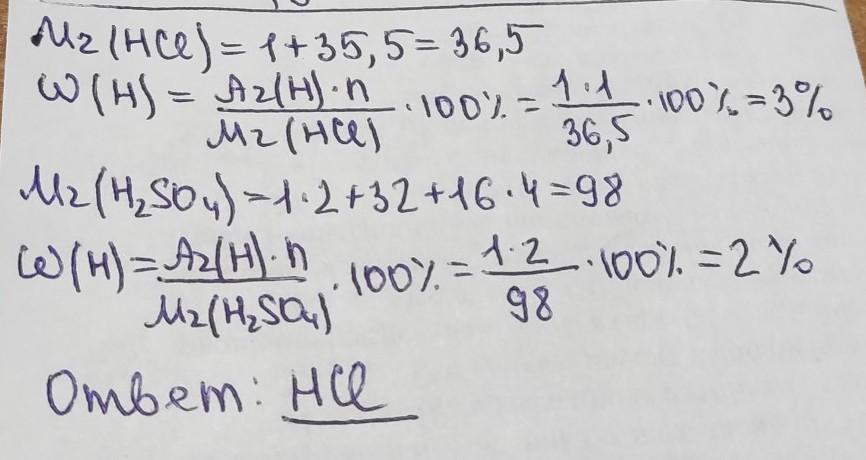 Mr(HCl) = 1 + 35,5 = 36,5
ω(H) = Ar(H)·n / Mr(HCl) · 100% = 1·1 / 36,5 · 100% = 3%
Mr(H₂SO₄) = 1·2 + 32 + 16·4 = 98
ω(H) = Ar(H)·n / Mr(H₂SO₄) · 100% = 1·2 / 98 · 100% = 2%
Ответ: HCl